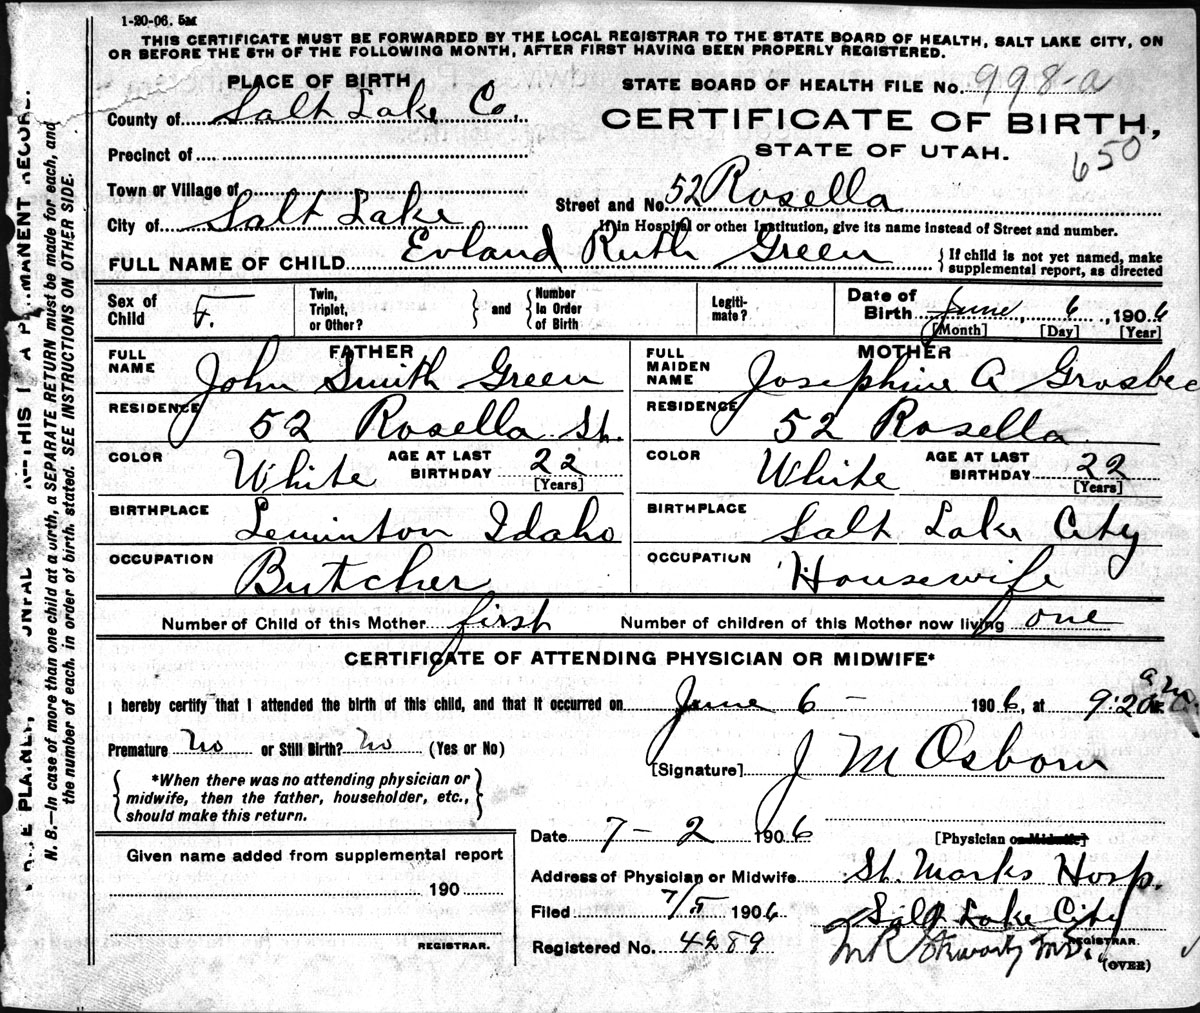 1-20-06. 5M
THIS CERTIFICATE MUST BE FORWARDED BY THE LOCAL REGISTRAR TO THE STATE BOARD OF HEALTH, SALT LAKE CITY, ON
OR BEFORE THE 5TH OF THE FOLLOWING MONTH, AFTER FIRST HAVING BEEN PROPERLY REGISTERED.
PLACE OF BIRTH
STATE BOARD OF HEALTH FILE No. 998-a
County of Salt Lake Co.
CERTIFICATE OF BIRTH,
Precinct of
STATE OF UTAH.
650
Town or Village of
Street and No. 52 Rosella
City of Salt Lake
If in Hospital or other Institution, give its name instead of Street and number.
FULL NAME OF CHILD Evland Ruth Green
{ If child is not yet named, make
supplemental report, as directed
Sex of Child F.
Twin, Triplet, or Other? } and { Number In Order of Birth
Legiti- mate?
Date of Birth June, 6, 1906
[Month] [Day] [Year]
FATHER
FULL NAME John Smith Green
RESIDENCE 52 Rosella St.
COLOR White AGE AT LAST BIRTHDAY 22
[Years]
BIRTHPLACE Leminton Idaho
OCCUPATION Butcher
MOTHER
FULL MAIDEN NAME Josephine A Grosbec
RESIDENCE 52 Rosella
COLOR White AGE AT LAST BIRTHDAY 22
[Years]
BIRTHPLACE Salt Lake City
OCCUPATION Housewife
Number of Child of this Mother first Number of children of this Mother now living one
CERTIFICATE OF ATTENDING PHYSICIAN OR MIDWIFE*
I hereby certify that I attended the birth of this child, and that it occurred on June 6 - 1906, at 9:20 a.m.
Premature no or Still Birth? no (Yes or No)
[Signature] J M Osborn
{ *When there was no attending physician or
midwife, then the father, householder, etc.,
should make this return. }
Date 7-2 1906
[Physician or Midwife]
Given name added from supplemental report
190
REGISTRAR.
Address of Physician or Midwife St. Marks Hosp.
Filed 7/5 1906 Salt Lake City
Registered No. 4289
REGISTRAR.
(OVER)
N. B.—In case of more than one child at a birth, a SEPARATE RETURN must be made for each, and
the number of each, in order of birth, stated. SEE INSTRUCTIONS ON OTHER SIDE.